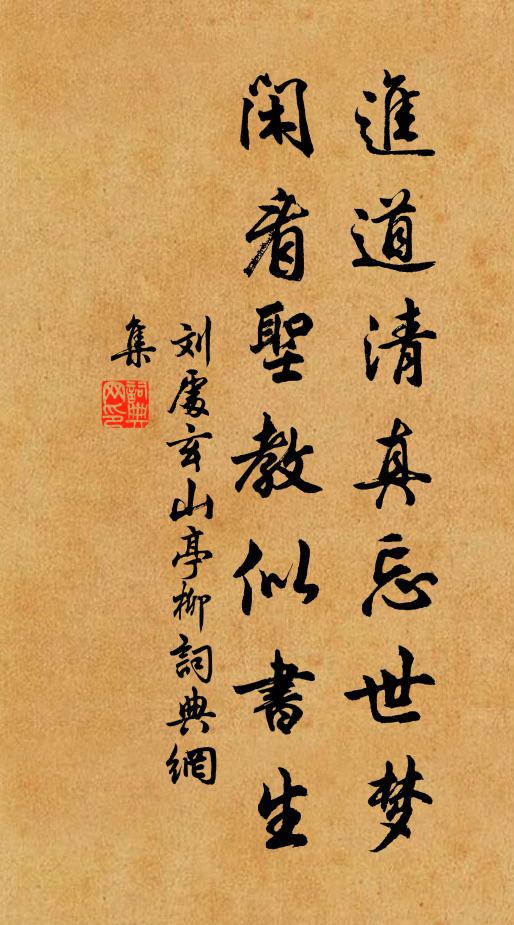 進道清真忘世梦
閑看聖教似書生
刘處玄山亭柳詞典網
集
詞典網印